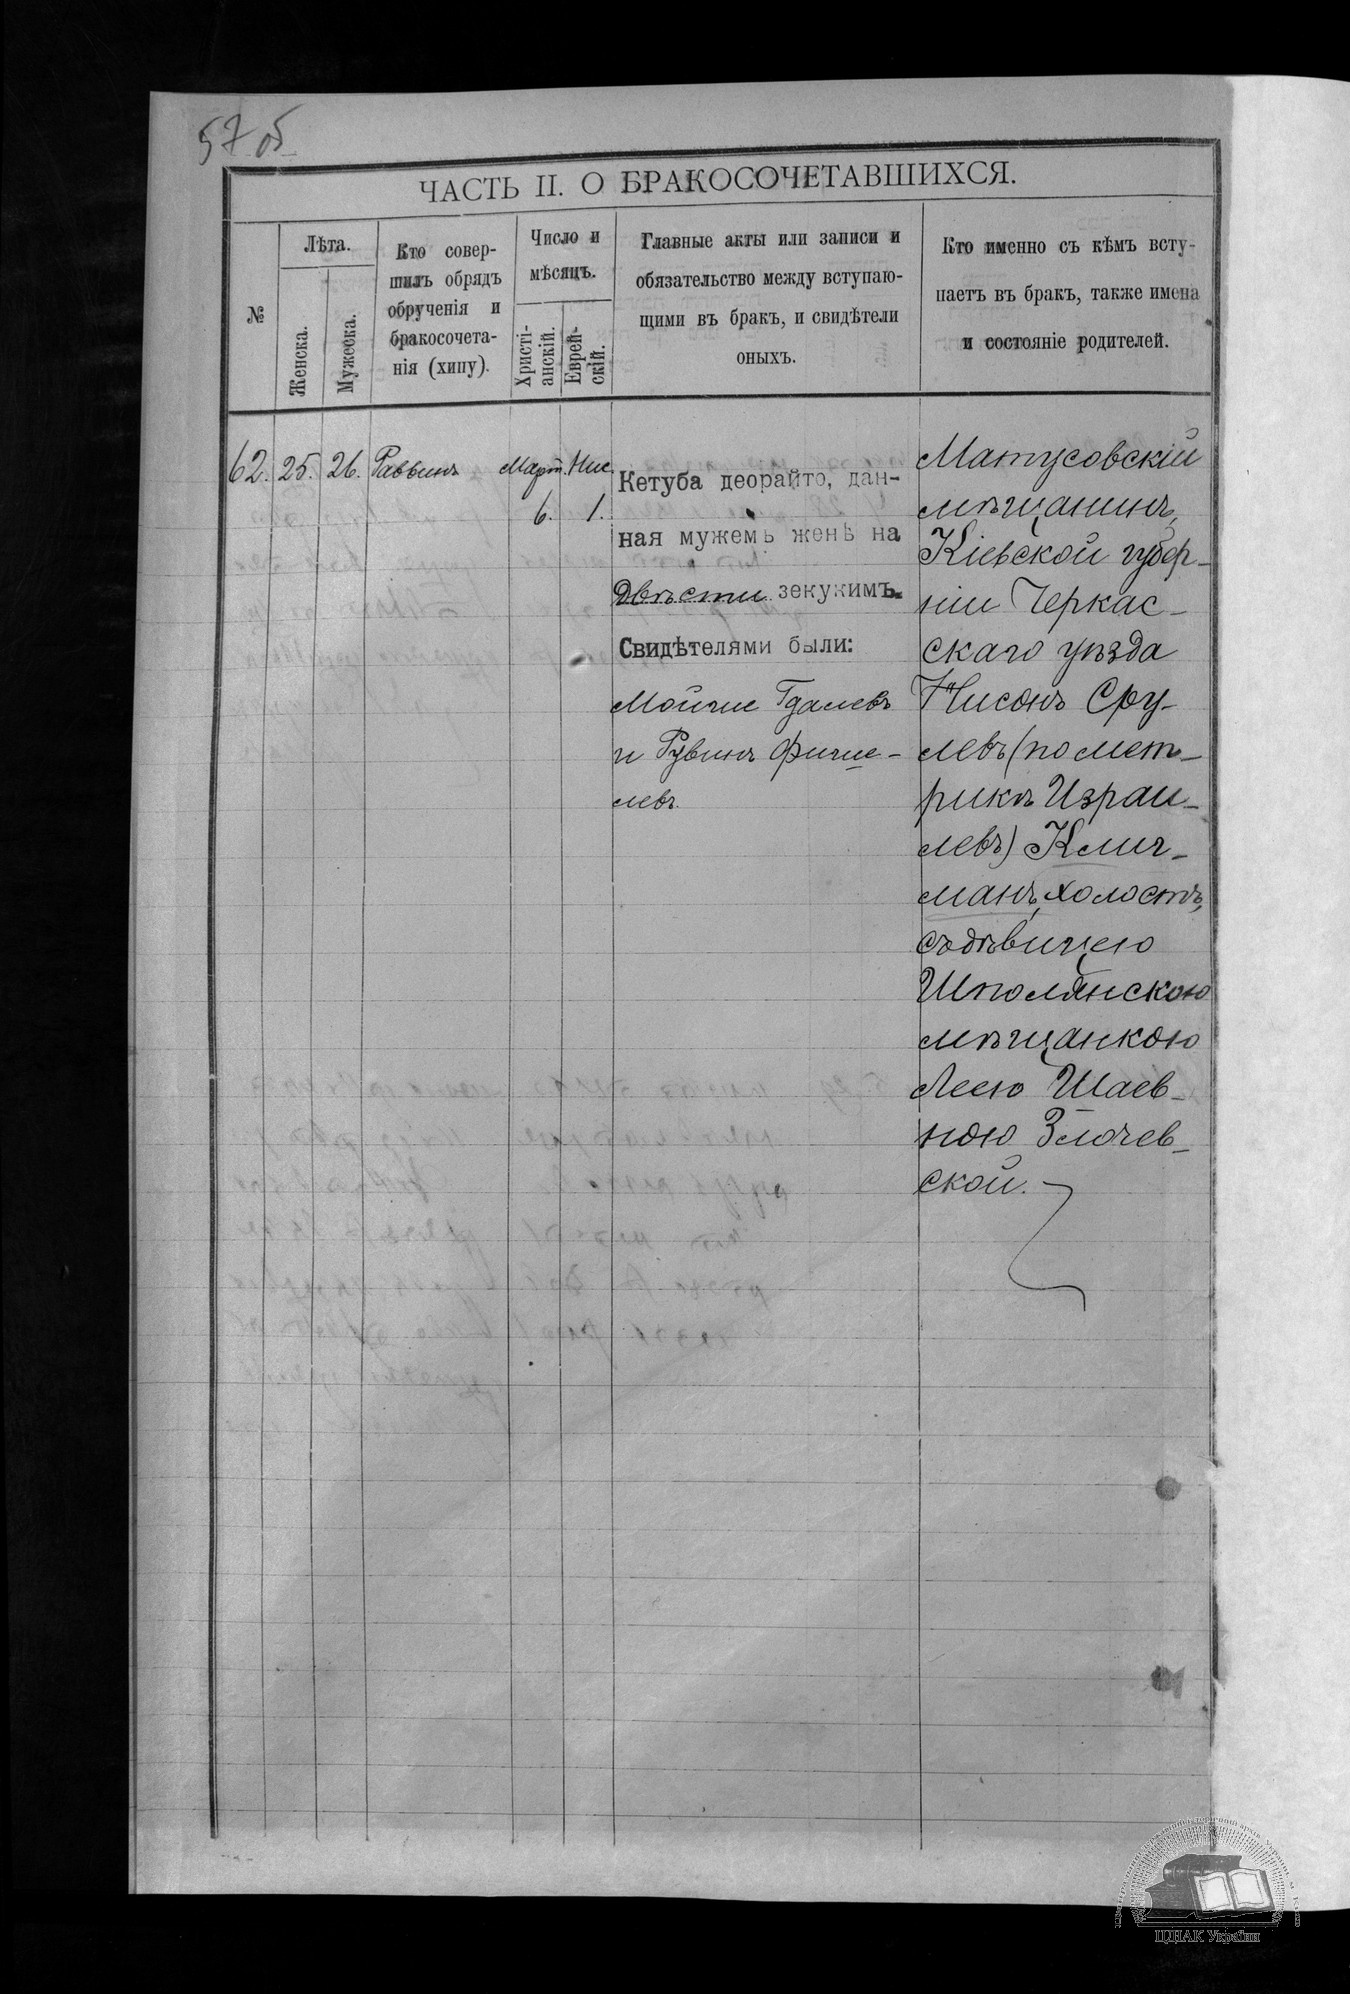 57 об
ЧАСТЬ II. О БРАКОСОЧЕТАВШИХСЯ.
№
Лѣта.
Женска.
Мужеска.
Кто совер-
шилъ обрядъ
обрученія и
бракосочета-
нія (хипу).
Число и
мѣсяцъ.
Христі-
анскій.
Еврей-
скій.
Главные акты или записи и
обязательство между вступаю-
щими въ бракъ, и свидѣтели
оныхъ.
Кто именно съ кѣмъ всту-
паетъ въ бракъ, также имена
и состояніе родителей.
62.
25.
26.
Раввинъ
Март.
6.
Нис.
1.
Кетуба деорайто, дан-
ная мужемъ женѣ на
двѣсти зекукимъ.
Свидѣтелями были:
Мойше Гдалевъ
и Рувинъ Фише-
левъ
Матусовскій
мѣщанинъ,
Кіевской губер-
ніи Черкас-
скаго уѣзда
Нисонъ Сру-
левъ (по мет-
рикѣ Израи-
левъ) Клич-
манъ, холостъ,
съ дѣвицею
Шполянскою
мѣщанкою
Леею Шаев-
ною Злочев-
ской.
ЦДІАК України